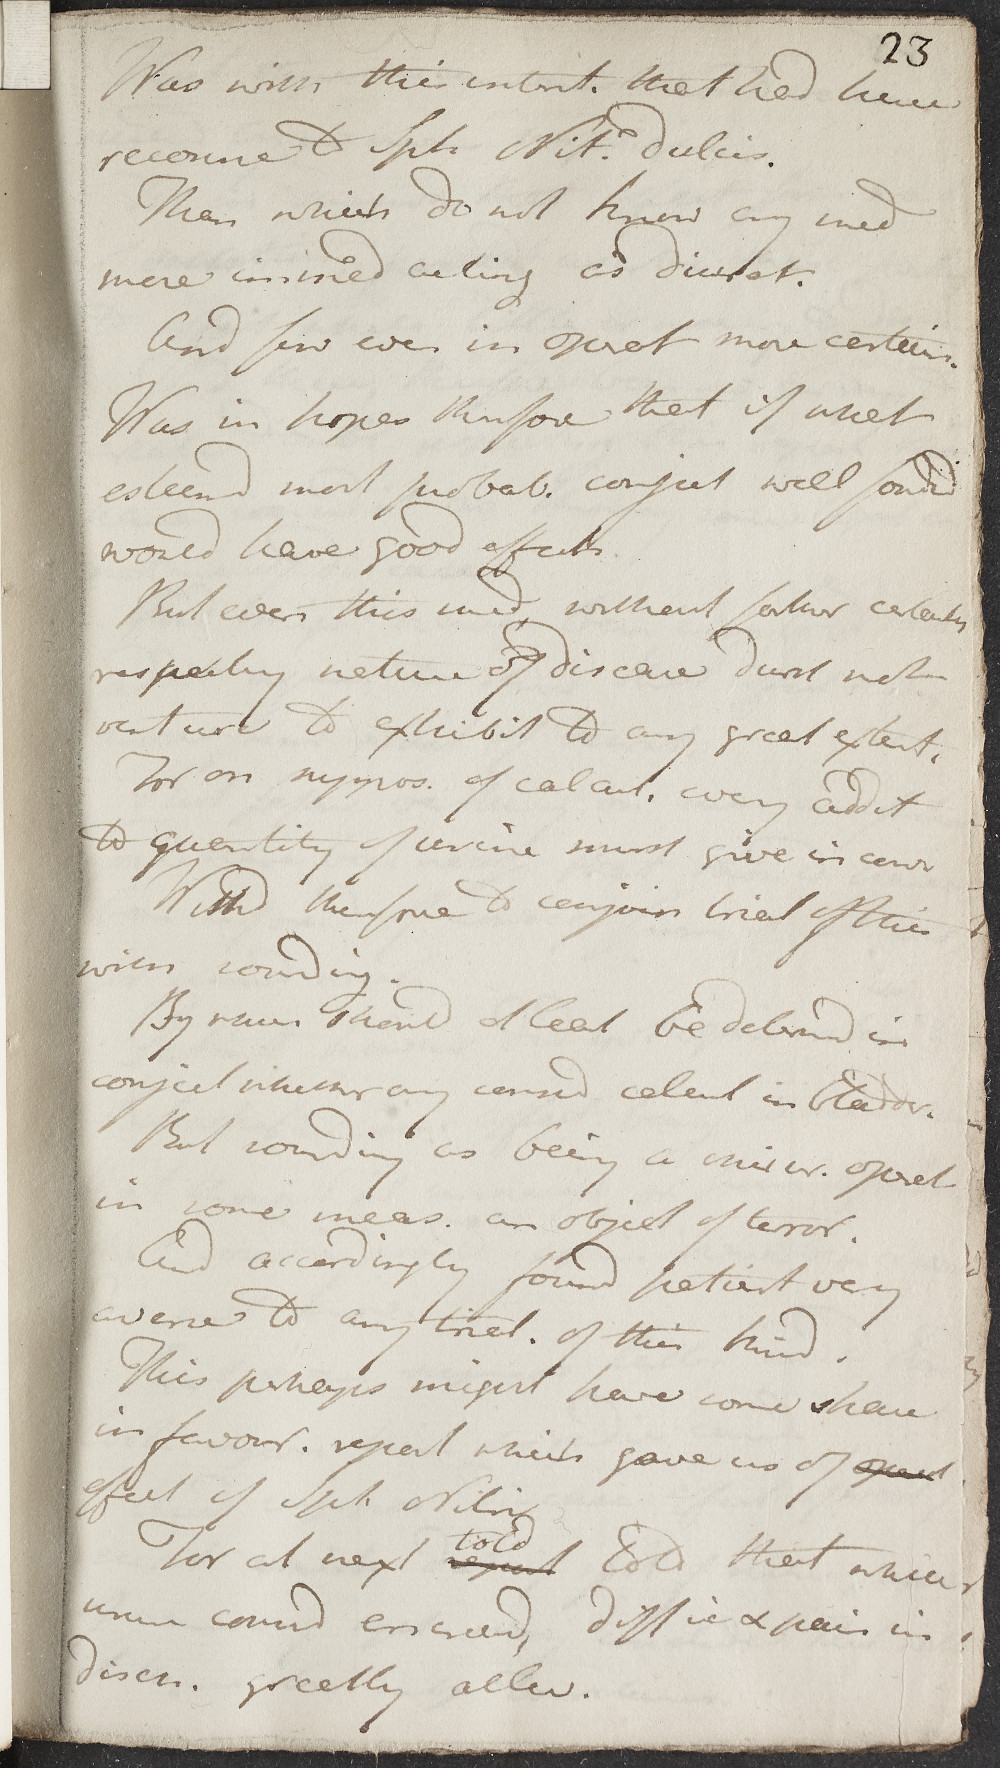 23
Was with this intent. that had here
recourse to Sph Nit.e dulcis.
Than which do not know any med
more immed acting as diuret.
And few even in operat more certain.
Was in hopes therfore that if what
esteemd most probab. conject well fondd
would have good effects.
But even this med, without farther certainty
respecting nature of disease durst not
venture to exhibit to any great extent.
For on suppos. of calcul. every addit
to quantity of urine must give
Wishd therfore to conjoin trial of this
with sounding.
By which should at least be determd in
conject whether any consid calcul in bladdr.
But sounding as being a operat
in some meas. an object of terror.
And accordingly found patient very
averse to any trial. of this kind.
This perhaps might have some share
in favour. report which gave us of operat
effect of Sph Nitri
For at next report told told that where
urine consid encreasd, diffic & pain in
disch. greatly allev.